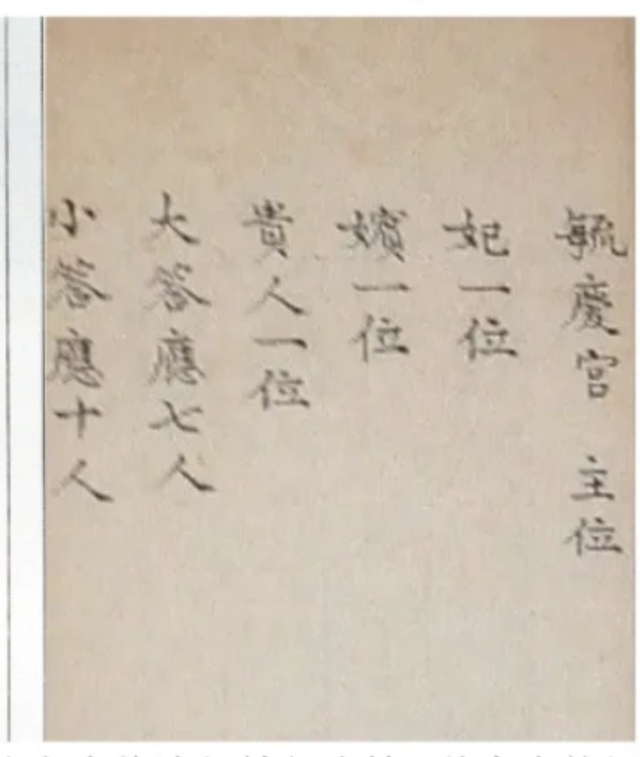 毓慶宮 主位
妃一位
嬪一位
貴人一位
大答應七人
小答應十人